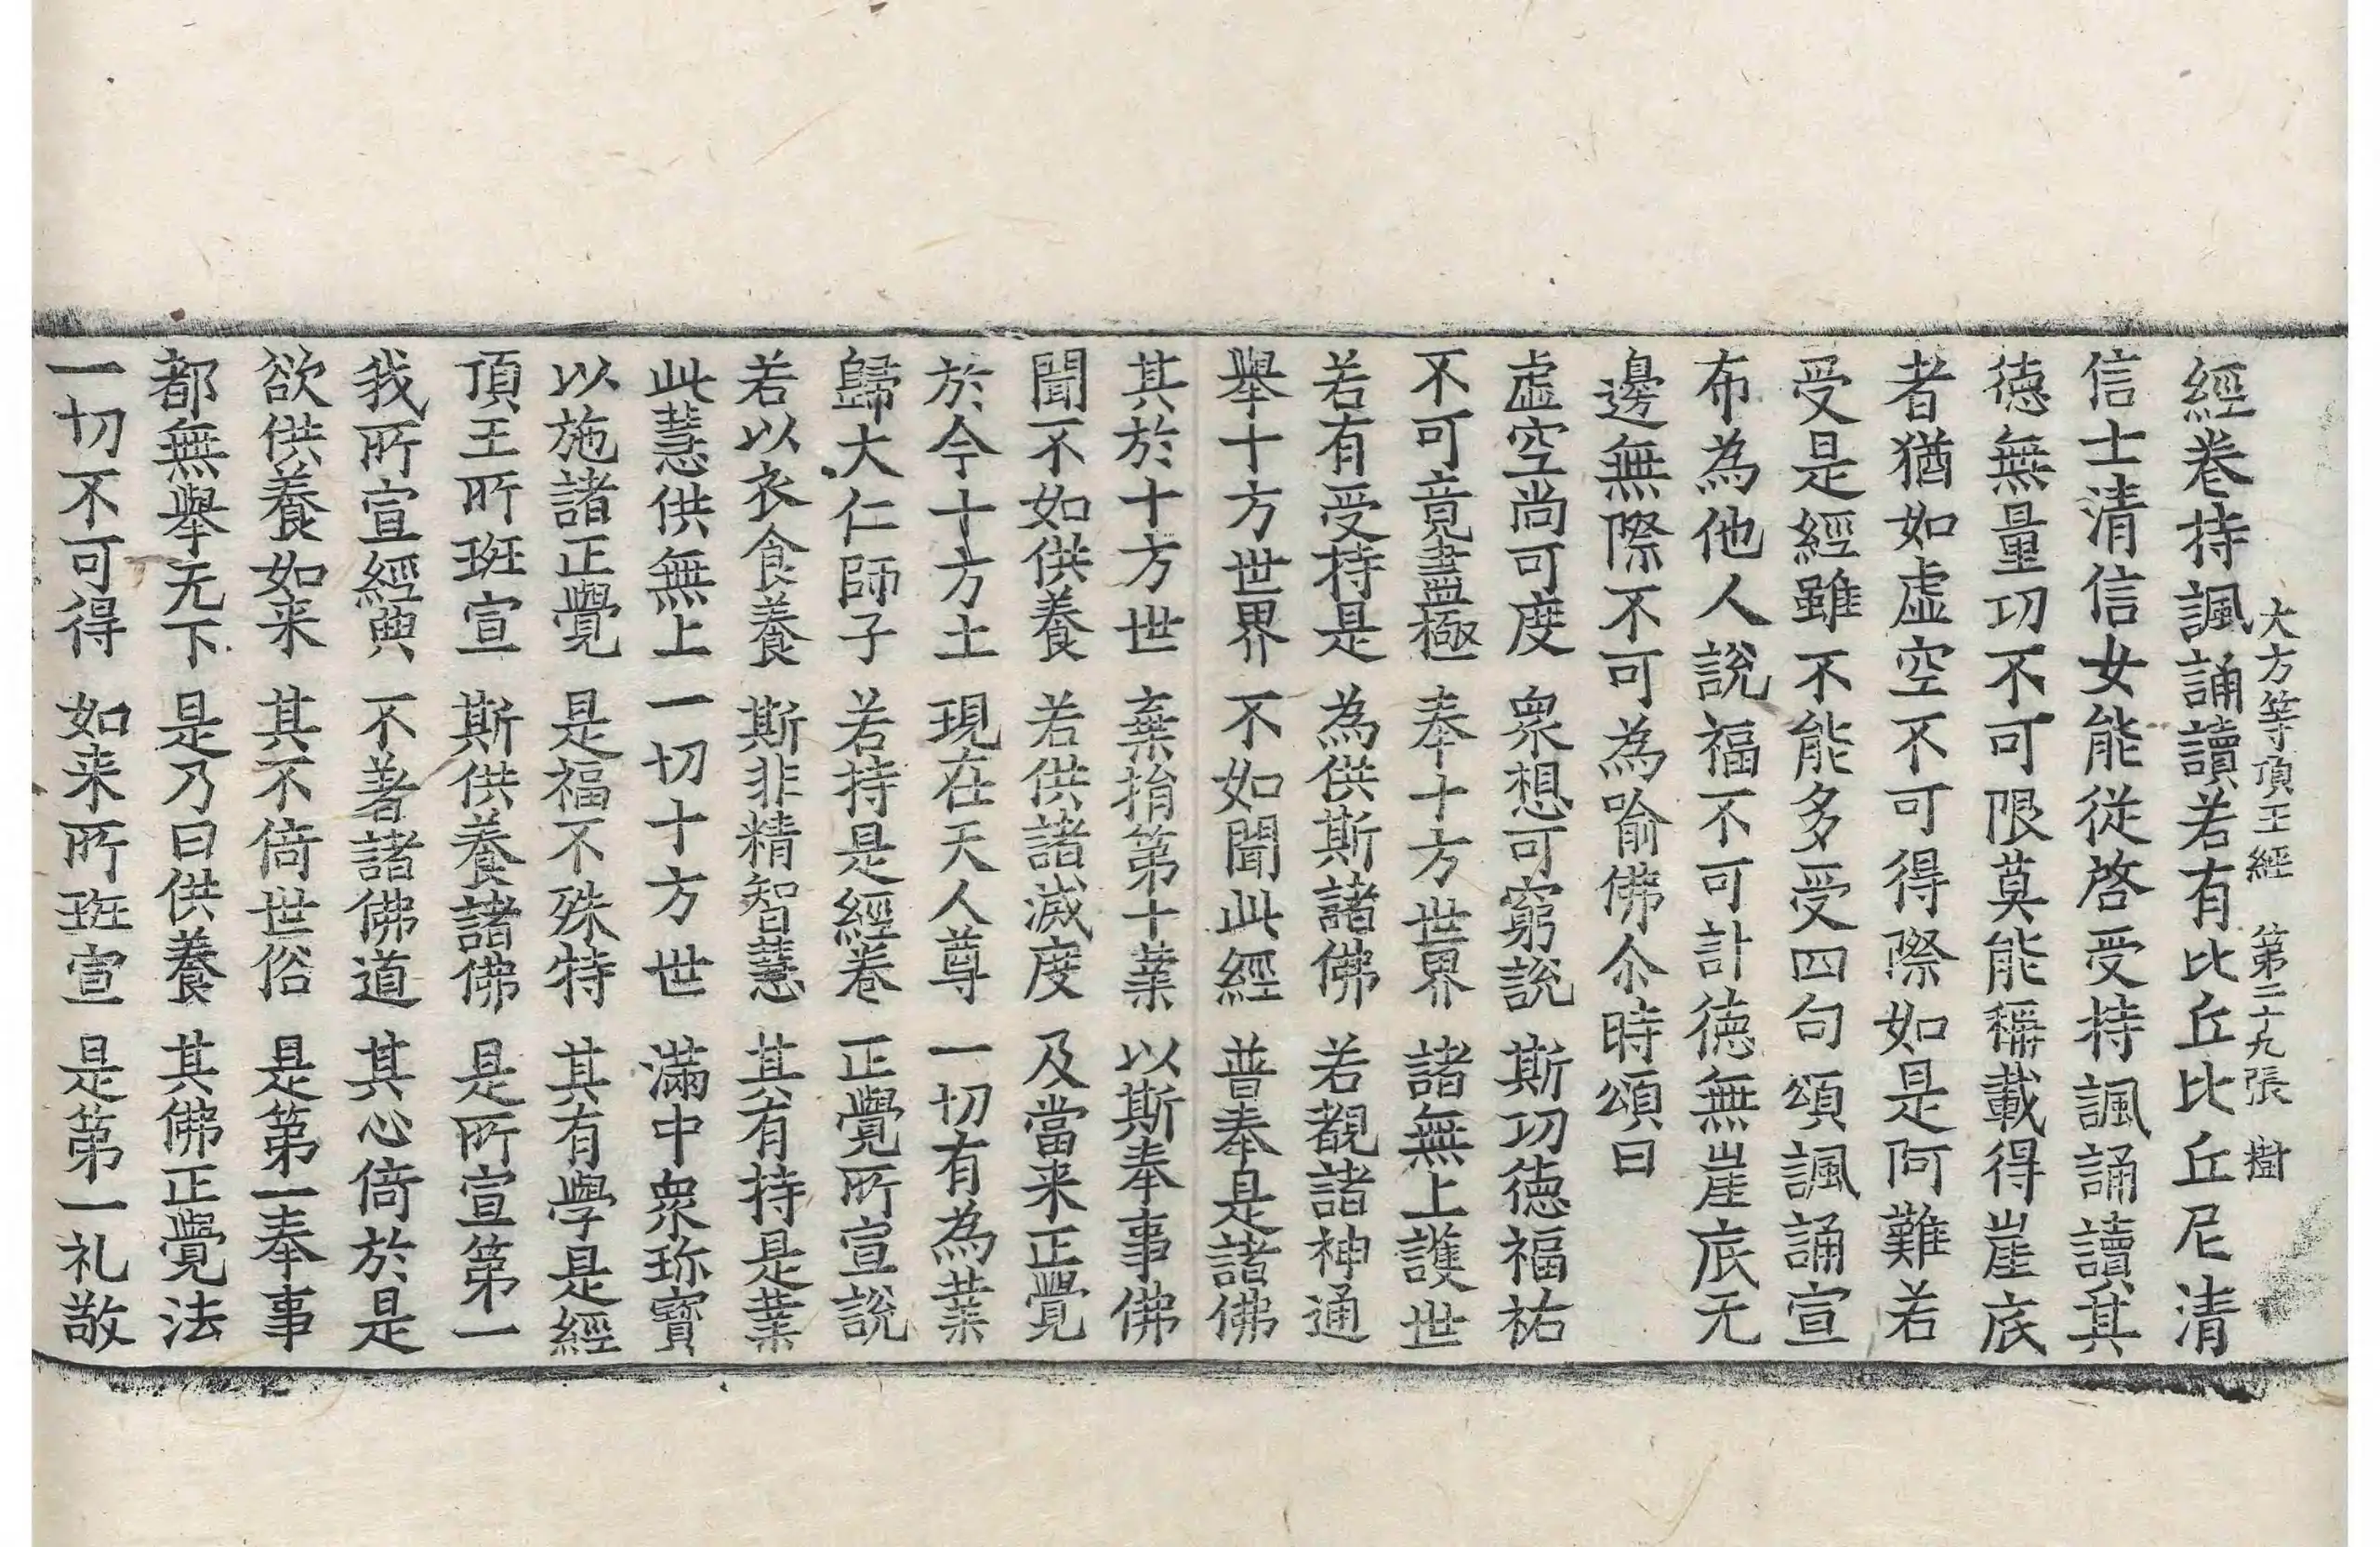 大方等頂王經　第二十九張　樹
經卷持諷誦讀若有比丘比丘尼清
信士清信女能從啓受持諷誦讀其
德無量功不可限莫能稱載得崖底
者猶如虛空不可得際如是阿難若
受是經雖不能多受四句頌諷誦宣
布為他人說福不可計德無崖底无
邊無際不可為喻佛尒時頌曰
虛空尚可度　衆想可窮說　斯功德福祐
不可竟盡極　奉十方世界　諸無上護世
若有受持是　為供斯諸佛　若覩諸神通
舉十方世界　不如聞此經　普奉是諸佛
其於十方世　棄捐第十業　以斯奉事佛
聞不如供養　若供諸滅度　及當来正覺
於今十方土　現在天人尊　一切有為業
歸大仁師子　若持是經卷　正覺所宣說
若以衣食養　斯非精智慧　其有持是業
此慧供無上　一切十方世　滿中衆珎寶
以施諸正覺　是福不殊特　其有學是經
頂王所班宣　斯供養諸佛　是所宣第一
我所宣經典　不著諸佛道　其心倚於是
欲供養如来　其不倚世俗　是第一奉事
都無舉无下　是乃曰供養　其佛正覺法
一切不可得　如来所班宣　是第一礼敬